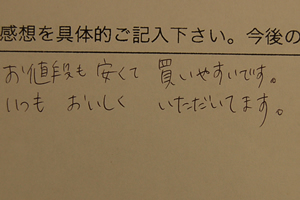 感想を具体的ご記入下さい。今後の
お値段も 安くて 買いやすいです。
いつも おいしく いただいてます。